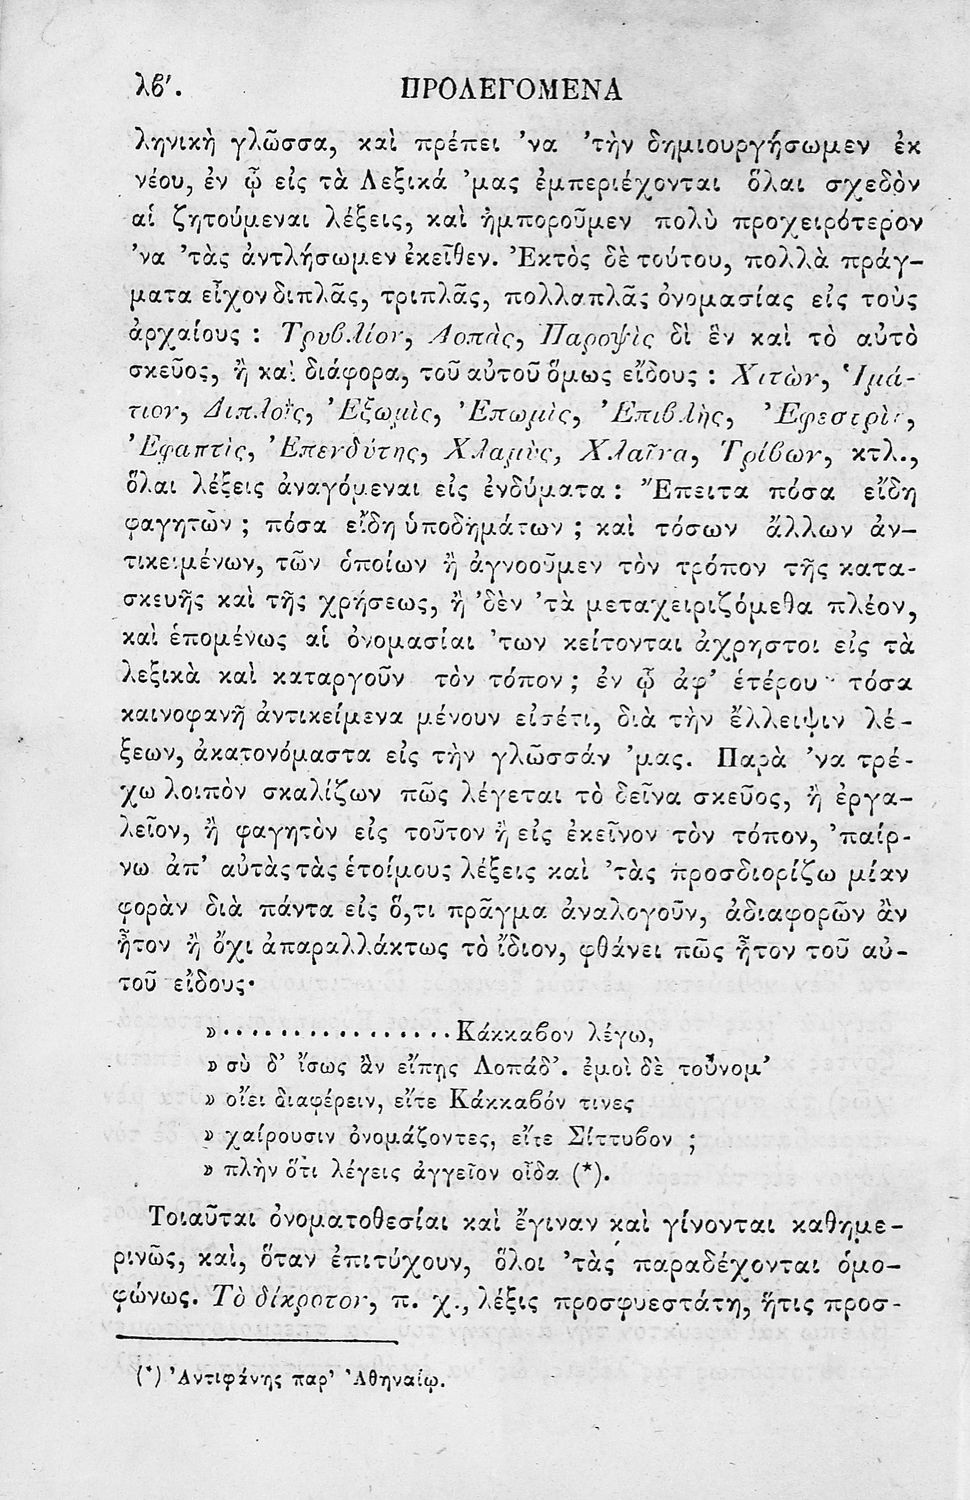 λϐ'. ΠΡΟΛΕΓΟΜΕΝΑ
ληνικὴ γλῶσσα, καὶ πρέπει 'να 'τὴν δημιουργήσωμεν ἐκ
νέου, ἐν ᾧ εἰς τὰ Λεξικά 'μας ἐμπεριέχονται ὅλαι σχεδὸν
αἱ ζητούμεναι λέξεις, καὶ ἠμποροῦμεν πολὺ προχειρότερον
'να 'τὰς ἀντλήσωμεν ἐκεῖθεν. Ἐκτὸς δὲ τούτου, πολλὰ πράγ–
ματα εἶχον διπλᾶς, τριπλᾶς, πολλαπλᾶς ὀνομασίας εἰς τοὺς
ἀρχαίους : Τρυϐλίον, Λοπὰς, Παροψὶς δι ἓν καὶ τὸ αὐτὸ
σκεῦος, ἢ καὶ διάφορα, τοῦ αὐτοῦ ὅμως εἴδους : Χιτὼν, Ἱμά-
τιον, Διπλοῒς, Ἐξωμὶς, Ἐπωμὶς, Ἐπιϐλὴς, Ἐφεστρὶς,
Ἐφαπτὶς, Ἐπενδύτης, Χλαμὺς, Χλαῖνα, Τρίϐων, κτλ.,
ὅλαι λέξεις ἀναγόμεναι εἰς ἐνδύματα : Ἔπειτα πόσα εἴδη
φαγητῶν ; πόσα εἴδη ὑποδημάτων ; καὶ τόσων ἄλλων ἀν–
τικειμένων, τῶν ὁποίων ἢ ἀγνοοῦμεν τὸν τρόπον τῆς κατα-
σκευῆς καὶ τῆς χρήσεως, ἢ 'δὲν 'τὰ μεταχειριζόμεθα πλέον,
καὶ ἑπομένως αἱ ὀνομασίαι 'των κείτονται ἄχρηστοι εἰς τὰ
λεξικὰ καὶ καταργοῦν τὸν τόπον ; ἐν ᾧ ἀφ' ἑτέρου τόσα
καινοφανῆ ἀντικείμενα μένουν εἰσέτι, διὰ τὴν ἔλλειψιν λέ-
ξεων, ἀκατονόμαστα εἰς τὴν γλῶσσάν 'μας. Παρὰ 'να τρέ-
χω λοιπὸν σκαλίζων πῶς λέγεται τὸ δεῖνα σκεῦος, ἢ ἐργα–
λεῖον, ἢ φαγητὸν εἰς τοῦτον ἢ εἰς ἐκεῖνον τὸν τόπον, 'παίρ-
νω ἀπ' αὐτὰς τὰς ἑτοίμους λέξεις καὶ 'τὰς προσδιορίζω μίαν
φορὰν διὰ πάντα εἰς ὅ,τι πρᾶγμα ἀναλογοῦν, ἀδιαφορῶν ἂν
ἦτον ἢ ὄχι ἀπαραλλάκτως τὸ ἴδιον, φθάνει πῶς ἦτον τοῦ αὐ-
τοῦ εἴδους·
» . . . . . . . . . . . . . . . . Κάκκαϐον λέγω,
» σὺ δ' ἴσως ἂν εἴπῃς Λοπάδ'. ἐμοὶ δὲ τοὔνομ'
» οἴει διαφέρειν, εἴτε Κάκκαϐόν τινες
» χαίρουσιν ὀνομάζοντες, εἴτε Σίττυϐον ;
» πλὴν ὅτι λέγεις ἀγγεῖον οἶδα (*).
Τοιαῦται ὀνοματοθεσίαι καὶ ἔγιναν καὶ γίνονται καθημε-
ρινῶς, καὶ, ὅταν ἐπιτύχουν, ὅλοι 'τὰς παραδέχονται ὁμο–
φώνως. Τὸ δίκροτον, π. χ., λέξις προσφυεστάτη, ἥτις προσ-
(*) Ἀντιφάνης παρ' Ἀθηναίῳ.